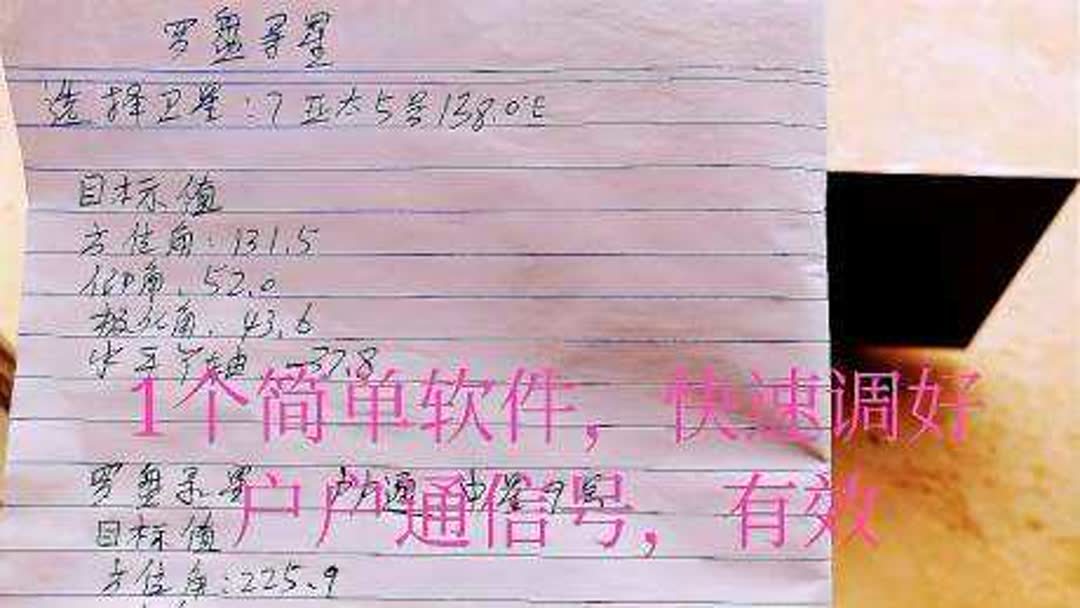 罗盘寻星
选择卫星:7 亚太5号138.0°E
目标值
方位角:131.5
仰角.52.0
极化角.43.6
水平 -37.8
1个简单软件，快速调好
罗盘寻星 户户通 中星9号
户户通信号，有效
目标值
方位角:225.9